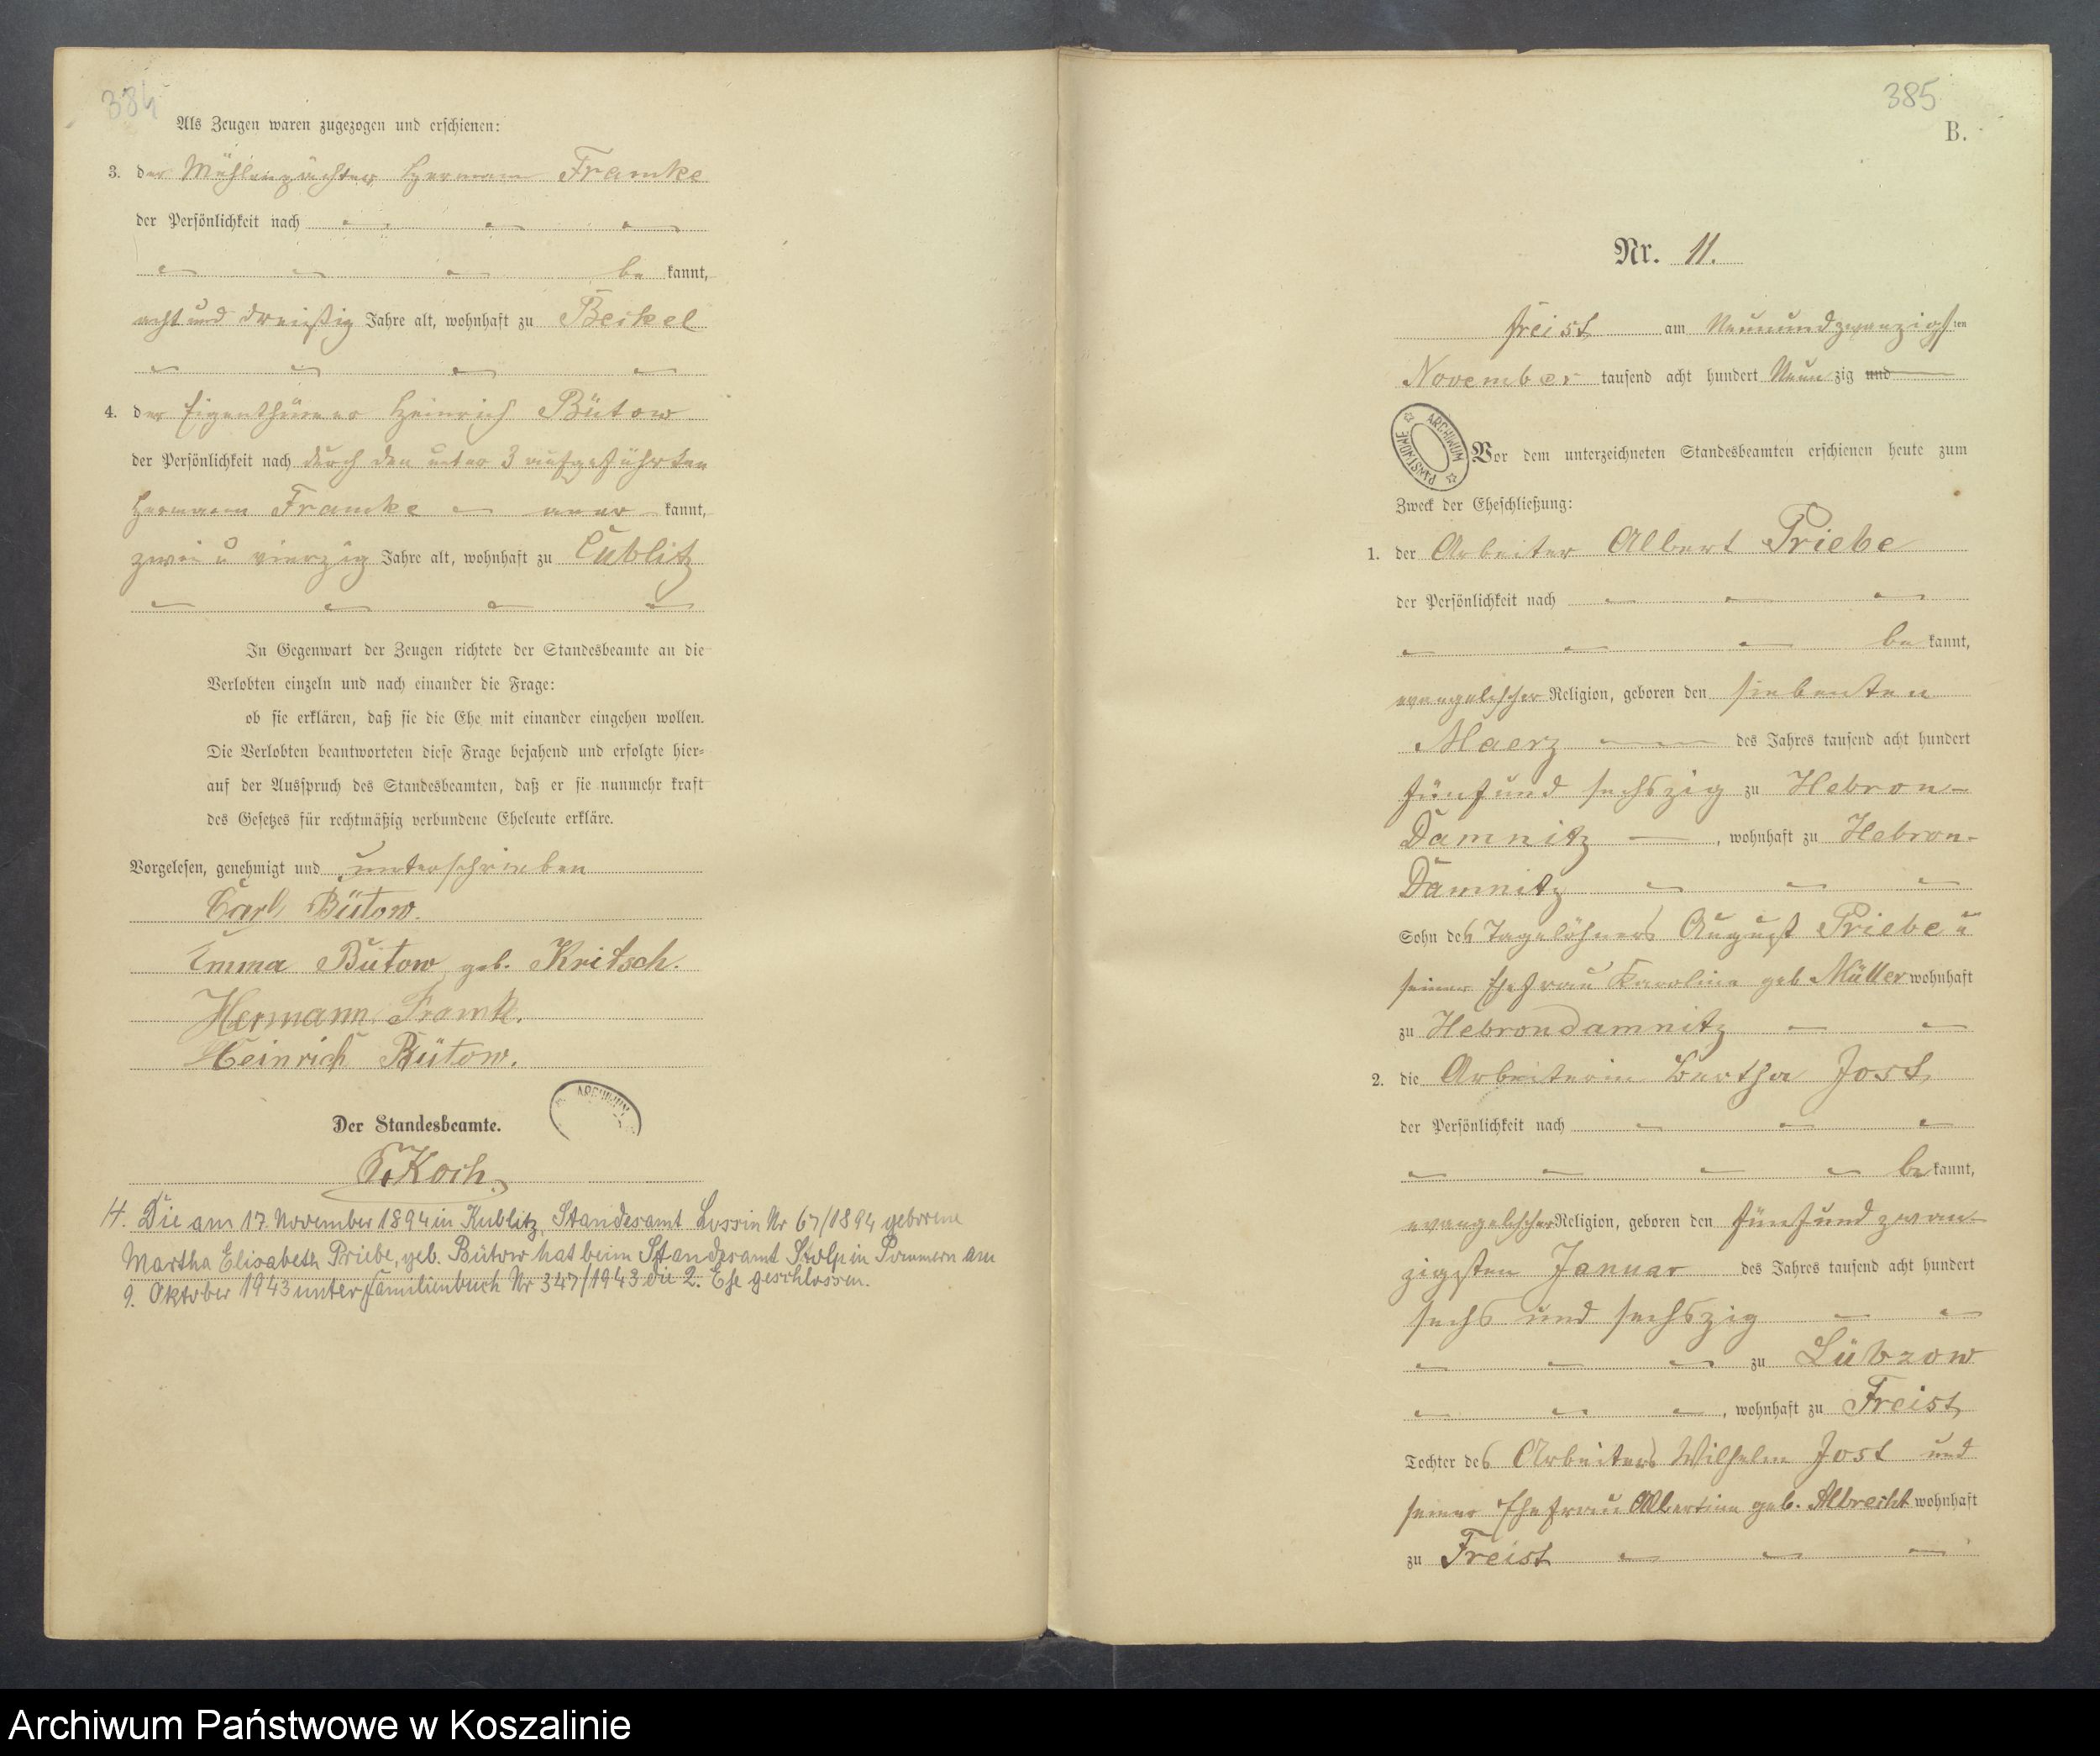 384
Als Zeugen waren zugezogen und erschienen:
3. der Mühlenpächter Hermann Framke
der Persönlichkeit nach
be kannt,
acht und dreißig Jahre alt, wohnhaft zu Beckel
4. der Eigenthümer Heinrich Bütow
der Persönlichkeit nach durch den unter 3 aufgeführten
Hermann Framke aner kannt,
zwei u vierzig Jahre alt, wohnhaft zu Cublitz
In Gegenwart der Zeugen richtete der Standesbeamte an die
Verlobten einzeln und nach einander die Frage:
ob sie erklären, daß sie die Ehe mit einander eingehen wollen.
Die Verlobten beantworteten diese Frage bejahend und erfolgte hier=
auf der Ausspruch des Standesbeamten, daß er sie nunmehr kraft
des Gesetzes für rechtmäßig verbundene Eheleute erkläre.
Vorgelesen, genehmigt und unterschrieben
Carl Bütow.
Emma Bütow geb. Kritsch.
Hermann Framk.
Heinrich Bütow.
ARCHIWUM
Der Standesbeamte.
Koch.
H. Die am 17. November 1894 in Kublitz, Standesamt Lossin Nr 67/1894 geborene
Martha Elisabeth Priebe, geb. Bütow hat beim Standesamt Stolp in Pommern am
9. Oktober 1943 unter Familienbuch Nr 347/1943 die 2. Ehe geschlossen.
385
B.
Nr. 11.
Freist am Neunundzwanzigsten
November tausend acht hundert Neun zig und
ARCHIWUM PAŃSTWOWE
Vor dem unterzeichneten Standesbeamten erschienen heute zum
Zweck der Eheschließung:
1. der Arbeiter Albert Priebe
der Persönlichkeit nach
be kannt,
evangelischer Religion, geboren den siebenten
Maerz des Jahres tausend acht hundert
fünf und sechszig zu Hebron-
Damnitz, wohnhaft zu Hebron-
Damnitz
Sohn des Tagelöhners August Priebe u
seiner Ehefrau Karoline geb Müller wohnhaft
zu Hebrondamnitz
2. die Arbeiterin Bertha Jost
der Persönlichkeit nach
be kannt,
evangelischer Religion, geboren den fünf und zwan-
zigsten Januar des Jahres tausend acht hundert
sechs und sechszig
zu Lübzow
, wohnhaft zu Freist,
Tochter des Arbeiters Wilhelm Jost und
seiner Ehefrau Albertine geb. Albrecht wohnhaft
zu Freist
Archiwum Państwowe w Koszalinie